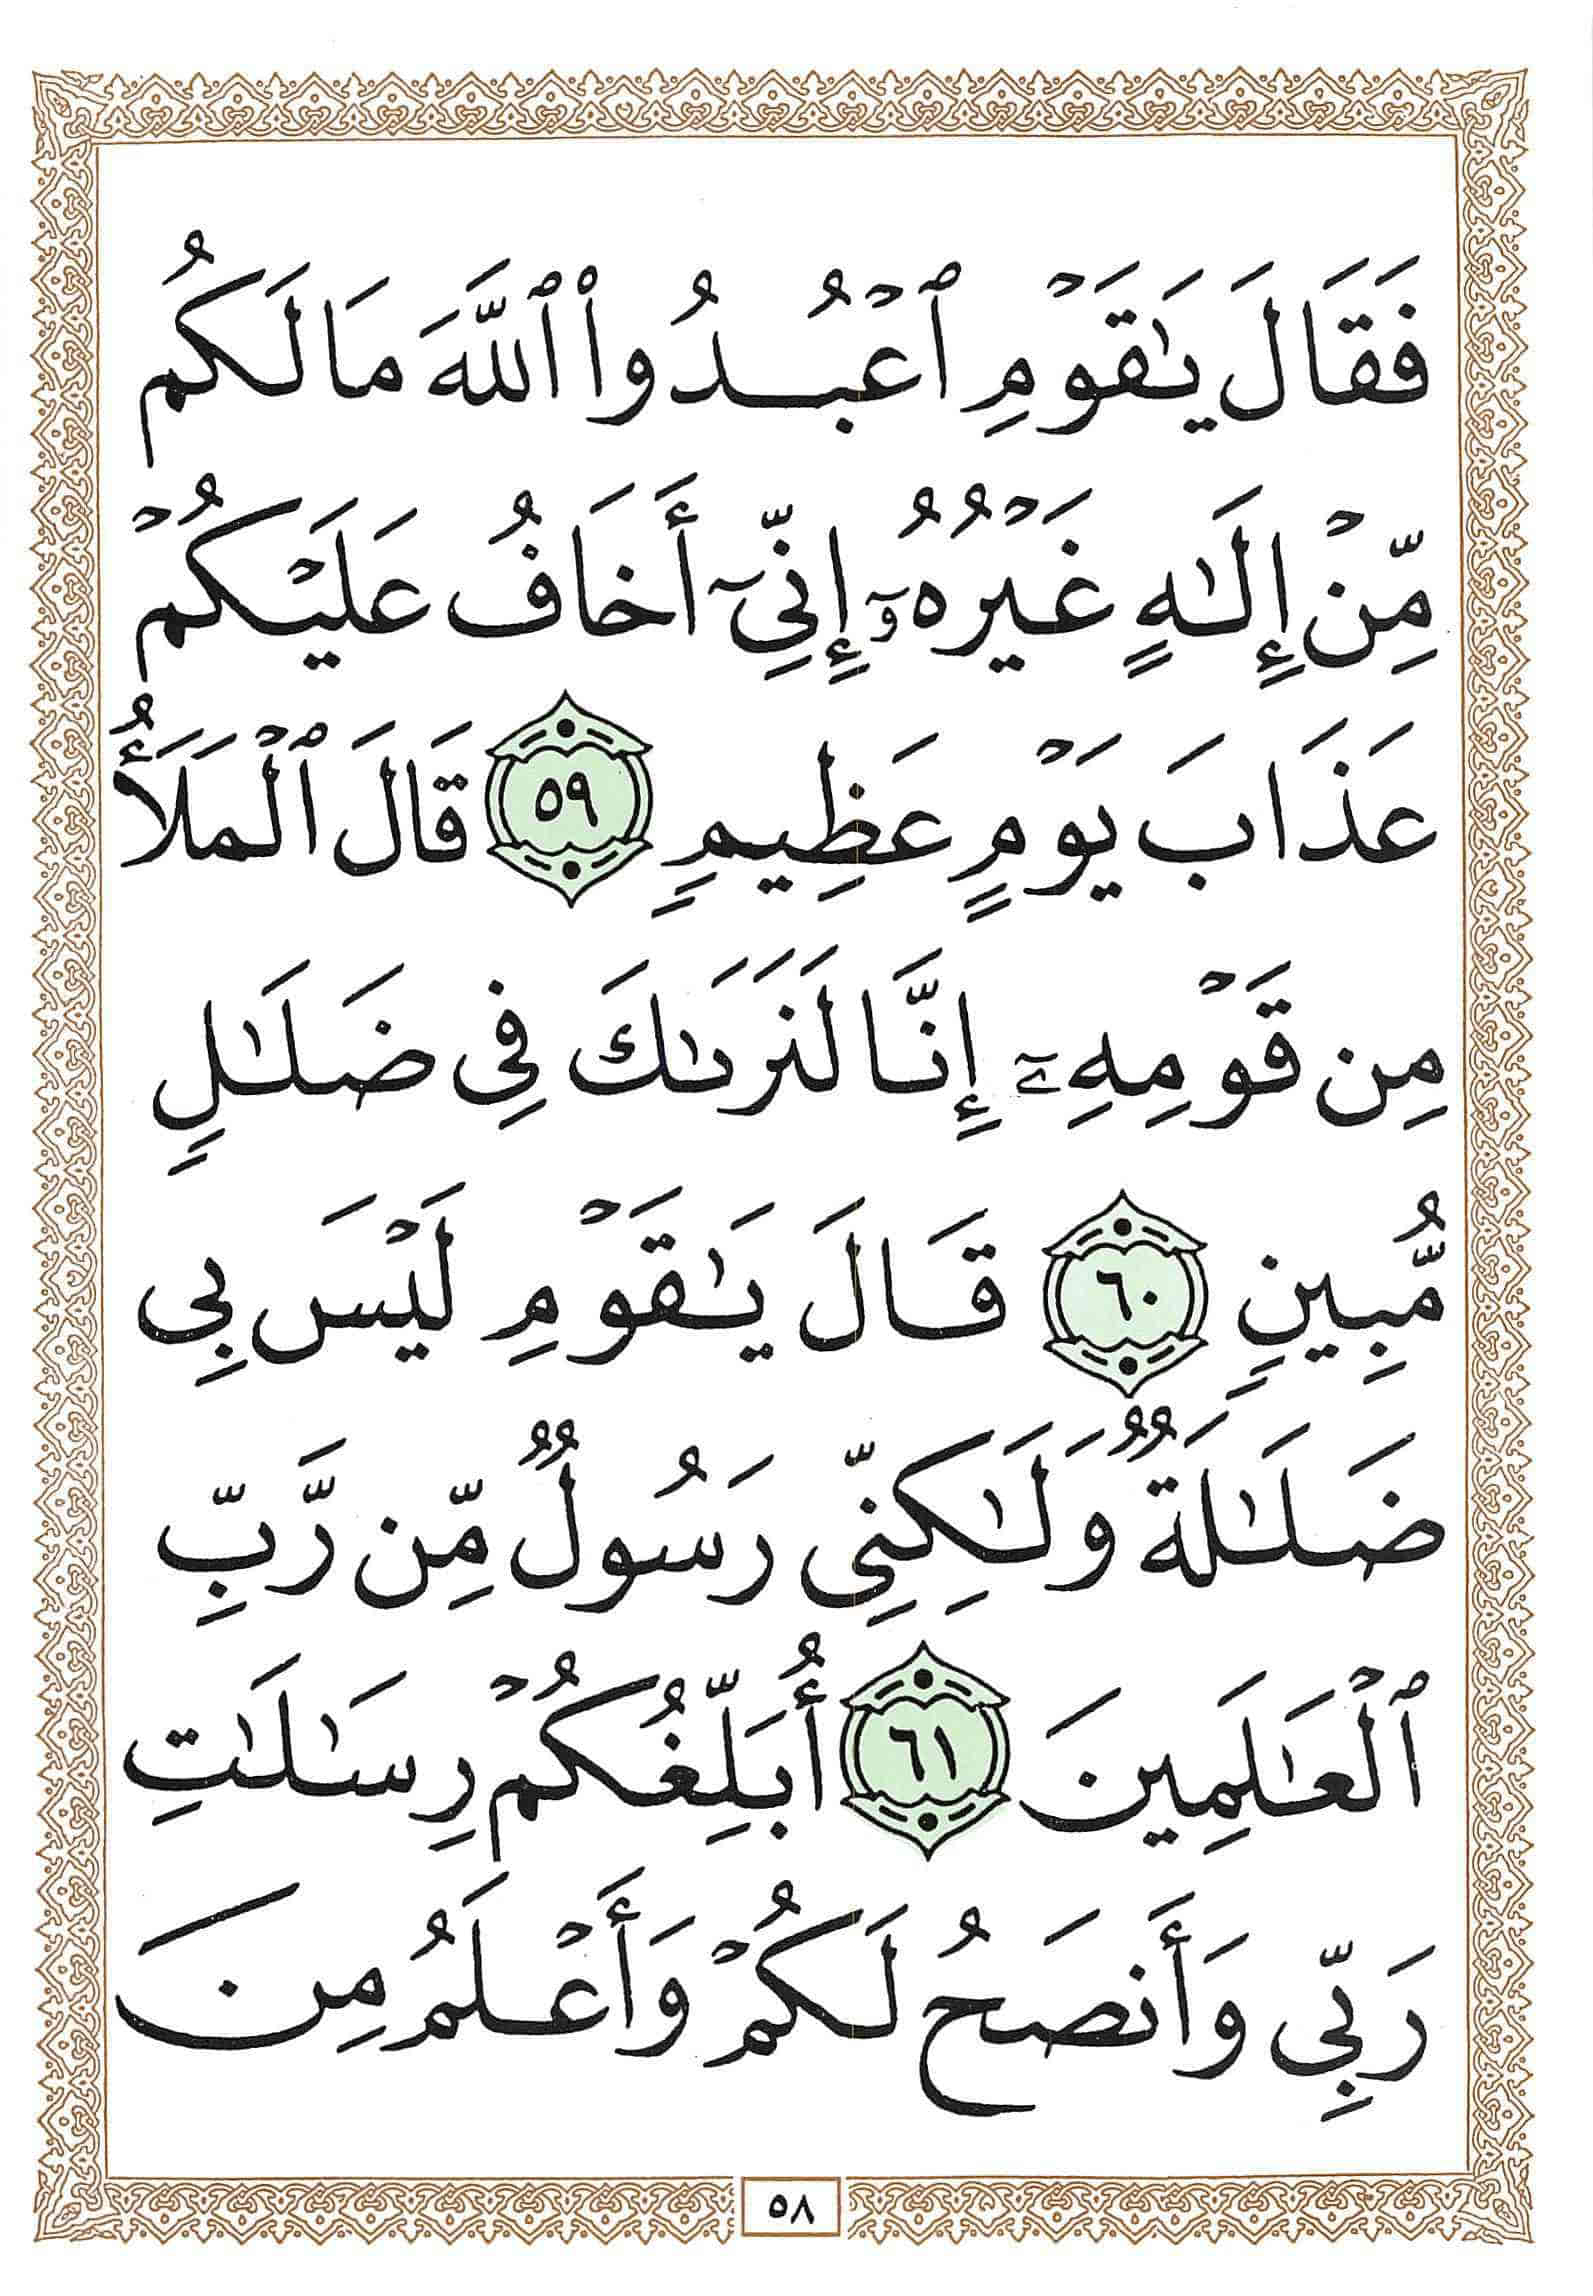 فَقَالَ يَٰقَوْمِ ٱعْبُدُوا۟ ٱللَّهَ مَا لَكُم
مِّنْ إِلَٰهٍ غَيْرُهُۥٓ إِنِّىٓ أَخَافُ عَلَيْكُمْ
عَذَابَ يَوْمٍ عَظِيمٍ ٥٩ قَالَ ٱلْمَلَأُ
مِن قَوْمِهِۦٓ إِنَّا لَنَرَىٰكَ فِى ضَلَٰلٍ
مُّبِينٍ ٦٠ قَالَ يَٰقَوْمِ لَيْسَ بِى
ضَلَٰلَةٌ وَلَٰكِنِّى رَسُولٌ مِّن رَّبِّ
ٱلْعَٰلَمِينَ ٦١ أُبَلِّغُكُمْ رِسَٰلَٰتِ
رَبِّى وَأَنصَحُ لَكُمْ وَأَعْلَمُ مِنَ
٥٨